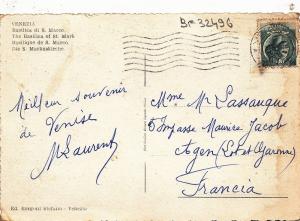 Br 32496
VENEZIA
Basilica di S. Marco.
The Basilica of St. Mark
Basilique de S. Marco.
Die S. Markuskirche.
Meilleur souvenir
de Venise
MLaurent
Mme Mr Lassauque
5 Impasse Maurice Jacob
Agen (Lot et Garonne)
Francia
Ed. Stefano - Venezia